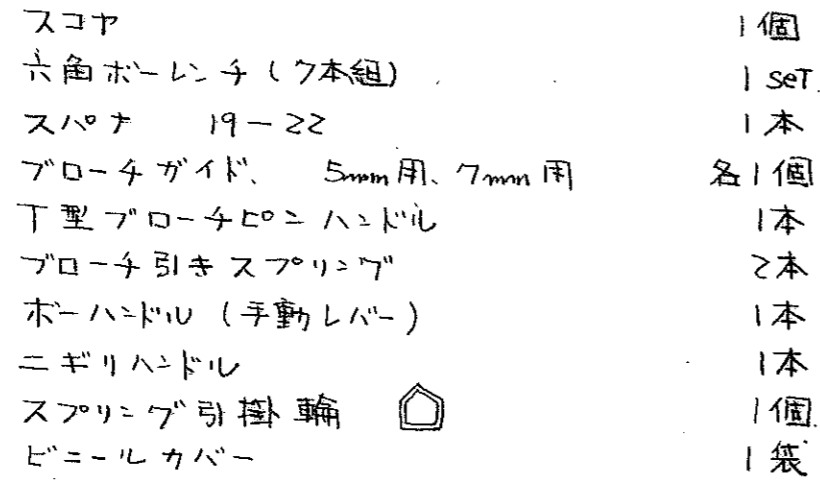 スコヤ 1個
六角ボーレンチ(7本組) 1 seT.
スパナ 19-22 1本
ブローチガイド、 5mm用、7mm用 各1個
T型ブローチピンハンドル 1本
ブローチ引きスプリング 2本
ボーハンドル(手動レバー) 1本
ニギリハンドル 1本
スプリング引掛輪 1個
ビニールカバー 1袋